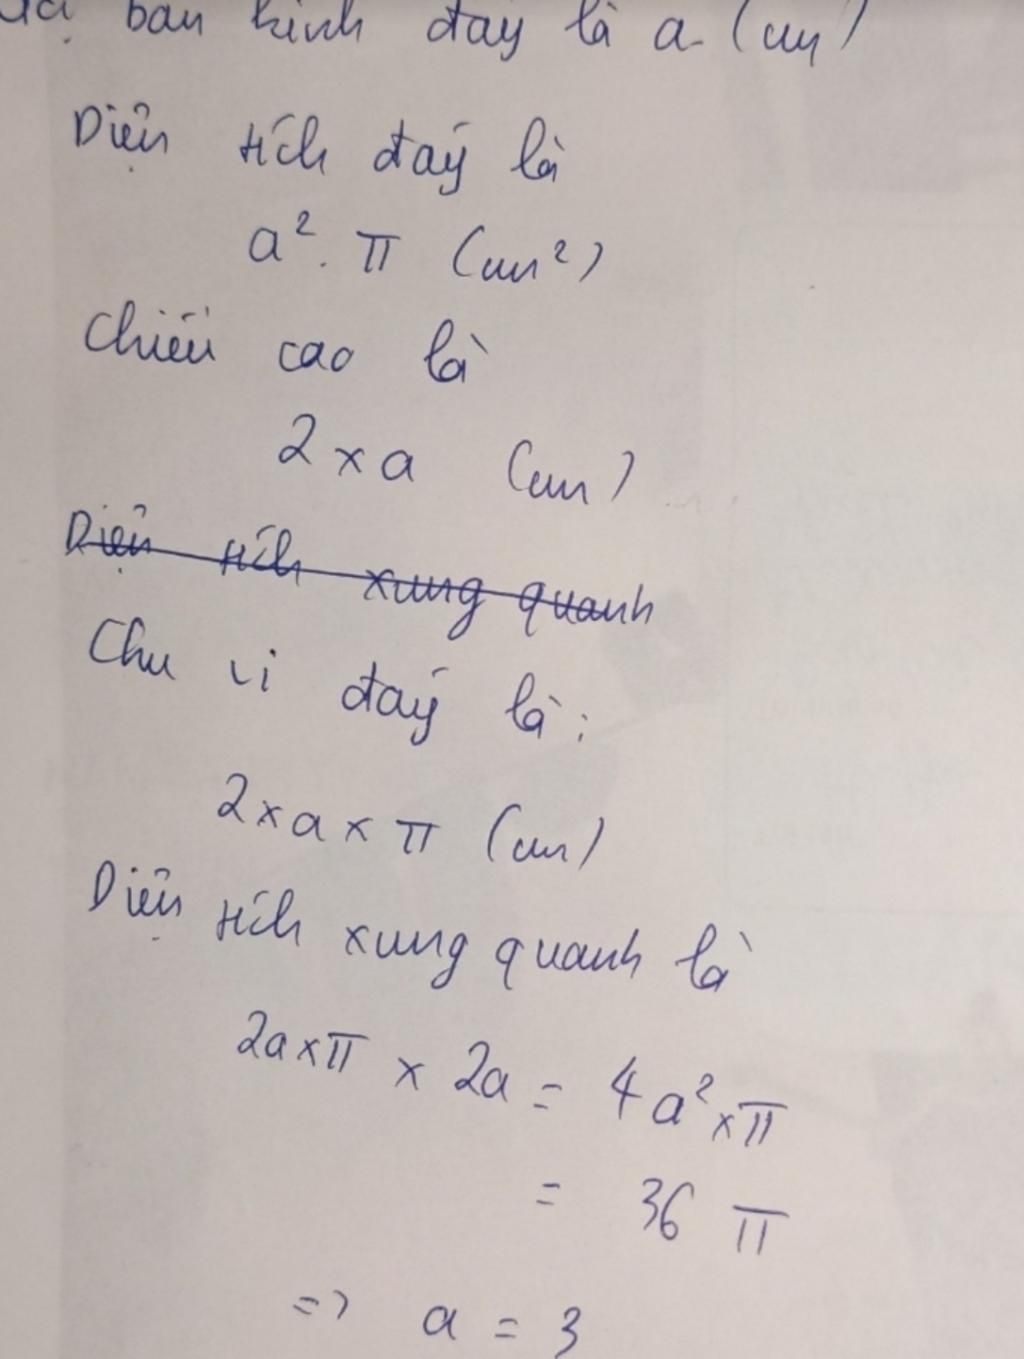 bán kính đáy là a (cm)
Diện tích đáy là
a². π (cm²)
Chiều cao là
2 x a (cm)
Diện tích xung quanh
Chu vi đáy là:
2 x a x π (cm)
Diện tích xung quanh là
2a x π x 2a = 4a² x π
= 36 π
=> a = 3